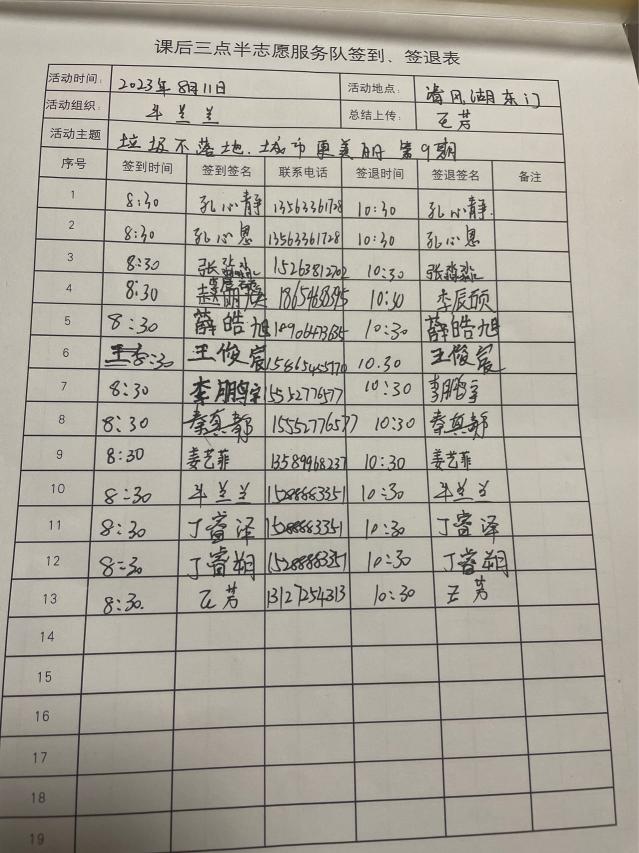 课后三点半志愿服务队签到、签退表
活动时间： 2023年8月11日 活动地点： 清风湖东门
活动组织： 牛兰兰 总结上传： 王芳
活动主题 垃圾不落地.城市更美丽 第9期
序号 签到时间 签到签名 联系电话 签退时间 签退签名 备注
1 8:30 孔心静 13563361728 10:30 孔心静.
2 8:30 孔心恩 13563361728 10:30 孔心恩
3 8:30 张淼淼 15263812702 10:30 张淼淼
4 8:30 10:30 李辰硕
5 8:30 薛皓旭 10:30 薛皓旭
6 8:30 王俊宸 10.30 王俊宸
7 8:30 李鹏宇 15552776577 10:30 李鹏宇
8 8:30 秦真静 15552776577 10:30 秦真静
9 8:30 姜艺菲 13589968237 10:30 姜艺菲
10 8:30 牛兰兰 15288883351 10:30 牛兰兰
11 8:30 丁睿泽 15288883351 10:30 丁睿泽
12 8:30 丁睿朔 15288883351 10:30 丁睿朔
13 8:30. 王芳 13127254313 10:30 王芳
14
15
16
17
18
19